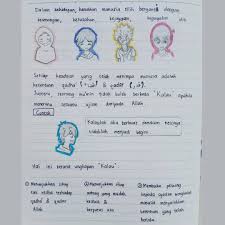 Dalam kehidupan, keadaan manusia silih berganti dengan
kesenangan, kesusahan, kejayaan, kegagalan dll
Setiap keadaan yang telah menimpa manusia adalah
ketentuan qadha' & qadar
Justeru seorang mu'min tidak boleh berkata "Kalau" apabila
menerima sesuatu ujian daripada Allah
Contoh
Kalaulah aku berbuat demikian nescaya
tidaklah menjadi begini
Hal ini kerana ungkapan "Kalau"
① Menunjukkan sikap
tidak redha terhadap
qadha & qadar
Allah
② Menunjukkan sikap
yang mudah
&
berputus asa
③ Membuka peluang
kepada syaitan
yang telah
berlaku